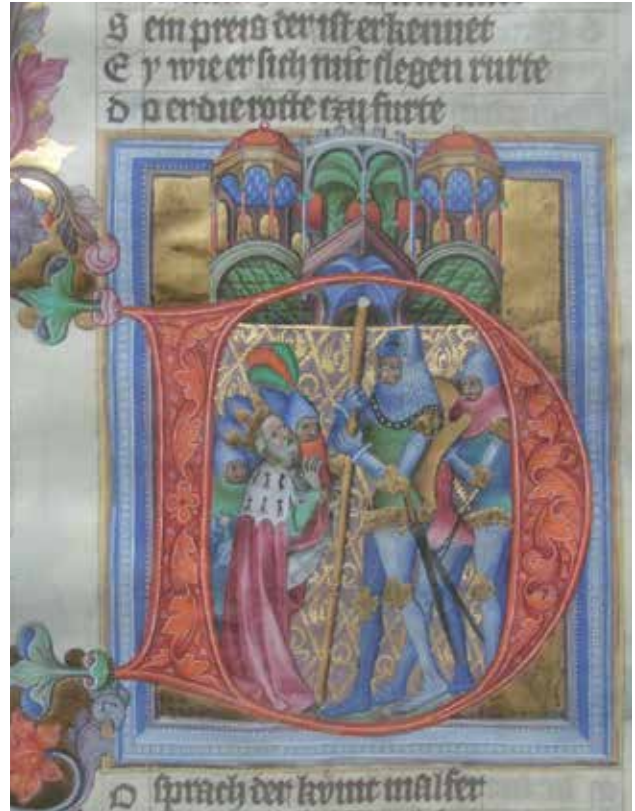 S ein preis der ist erkennet
E y wie er sich mit slegen rurte
d o er die rotte tzu furte
D
O sprach der kunic malfer